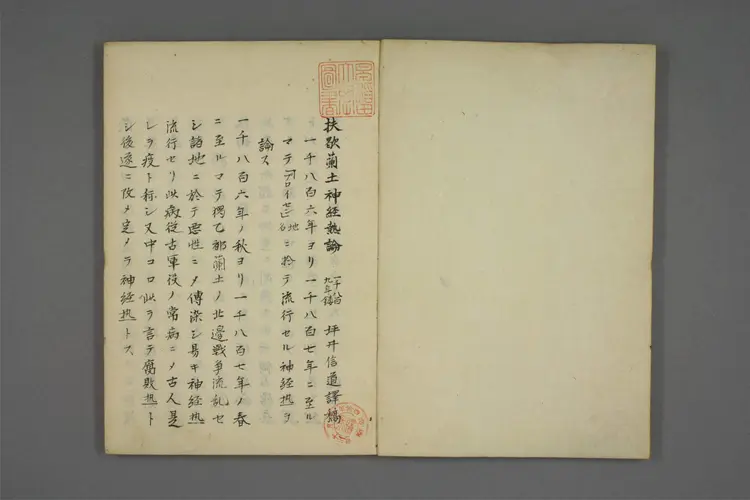 扶歇蘭土神経熱論 一千八百九年鐫 坪井信道譯稿
一千八百六年ヨリ一千八百七年ニ至ル
マテ 地 ニ於テ流行セル神経热ヲ
論ス
一千八百六年ノ秋ヨリ一千八百七年ノ春
ニ至ルマテ獨乙都蘭土ノ北邉戦争流乱セ
シ諸地ニ於テ悪性ニメ傳染シ易キ神経热
流行セリ此病従古軍役ノ常病ニメ古人是
レヲ疫ト称シ又中コロ此ヲ言テ腐敗热ト
シ後遂ニ改メ定メテ神経热トス